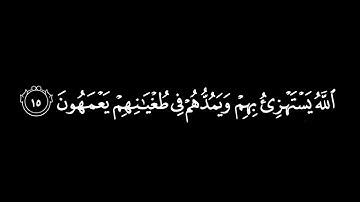 ٱللَّهُ يَسْتَهْزِئُ بِهِمْ وَيَمُدُّهُمْ فِى طُغْيَـٰنِهِمْ يَعْمَهُونَ ١٥